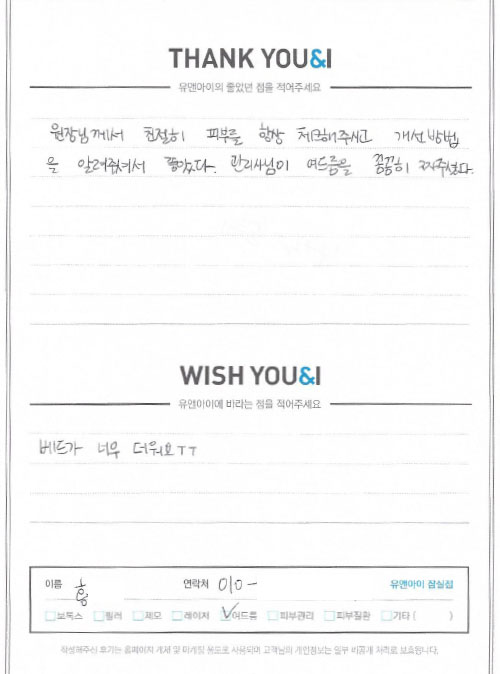 THANK YOU&I
유앤아이의 좋았던 점을 적어주세요
원장님께서 친절히 피부를 항상 체크해주시고 개선방법
을 알려주셔서 좋았다. 관리사님이 여드름을 꼼꼼히 짜주셨다.
WISH YOU&I
유앤아이에 바라는 점을 적어주세요
베드가 너무 더워요ㅜㅜ
이름 홍 연락처 010- 유앤아이 잠실점
보톡스 필러 제모 레이저 여드름 피부관리 피부질환 기타 ( )
작성해주신 후기는 홈페이지 게재 및 마케팅 용도로 사용되며 고객님의 개인정보는 일부 비공개 처리로 보호됩니다.